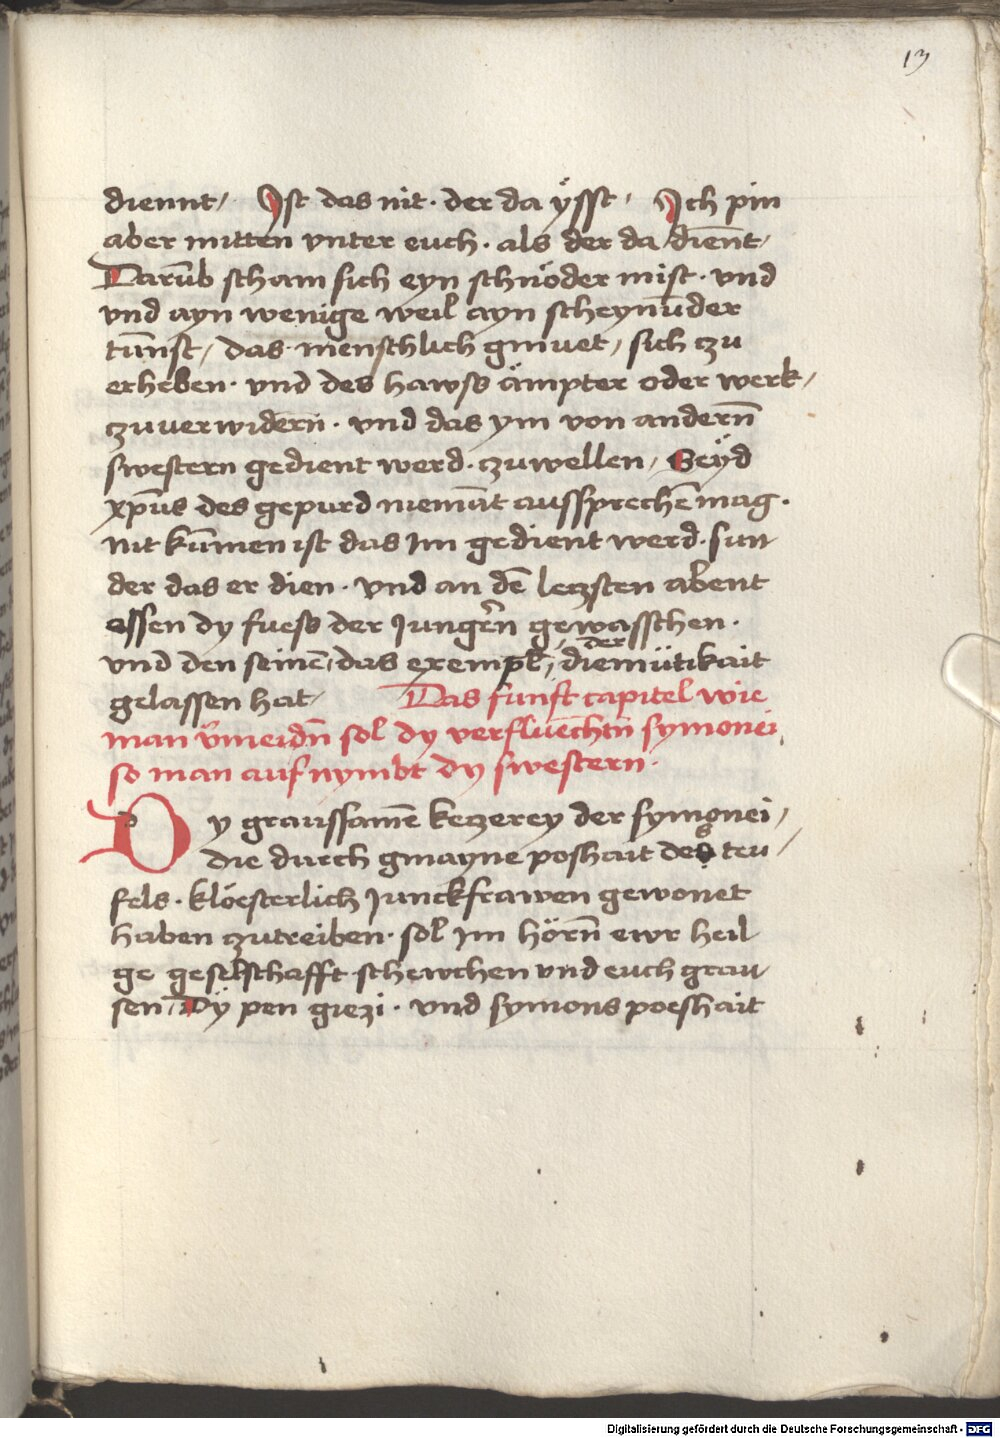 13
diennt / Ist das nit · der da ÿsst · Ich pin
aber mitten vnter euch · als der da / dieñt /
Darūb scham sich eyn schnöder mist · vnd
vnd ayn wenige weil ayn scheynūder
tūnst / das menschlich gmuet / sich czu
erheben · vnd des hawss ämpter oder werk /
czuuerwidern̄ · vnd das ym von andern̄
swestern gedient werd · czuwellen / Seÿd
xp̄us des gepurd niemāt aussprechē mag ·
nit kūmen ist das Im gedient werd · sun
der das er dien · vnd an dē leczsten abent
essen dy fuess der Jungern̄ gewasschen ·
vnd den seinē / das exempl̄ / der diemütikait
gelassen hat / Das funft capitel wie
man v̄meidn̄ sol dy verfluechtn̄ symonei
so man aufnymbt dy swestern ·
Dy graussamē keczerey der symonei /
die durch gmayne poshait des teu /
fels · klöesterlich Junckfrawen gewonet
haben czutreiben · sol Im hörn̄ ewr heil
ge geselschafft schewchen vnd euch grau
sen / Dÿ pen giezi · vnd symons poeshait
Digitalisierung gefördert durch die Deutsche Forschungsgemeinschaft - DFG